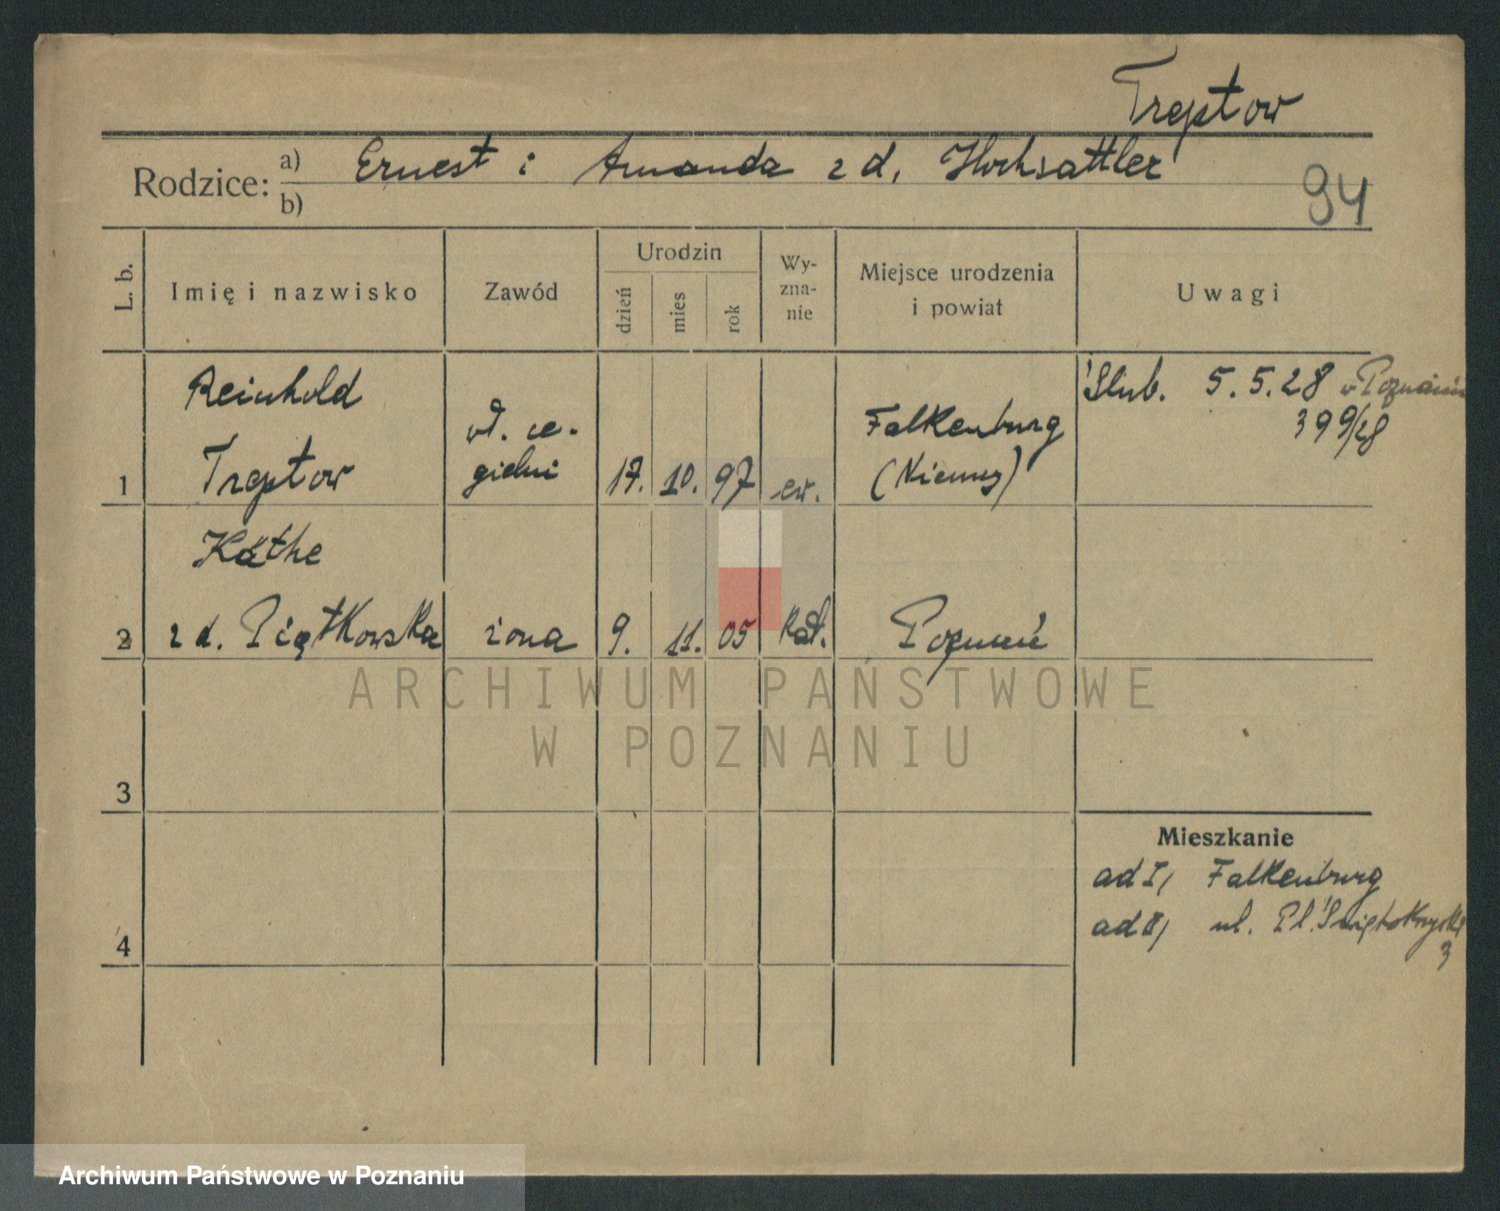 Treptow
Rodzice: a) Ernest i Amanda z d. Hochsattler
b)
94
L. b.
Imię i nazwisko
Zawód
Urodzin
dzień
mies
rok
Wy-
zna-
nie
Miejsce urodzenia
i powiat
Uwagi
1
Reinhold
Treptow
wł. ce-
gielni
17. 10. 97 ew.
Falkenburg
(Niemcy)
Ślub. 5.5.28 w Poznaniu
399/28
2
Käthe
z d. Piątkowska
żona 9. 11. 05 kat. Poznań
3
4
Mieszkanie
ad I, Falkenburg
ad II, ul. Pl. Świętokrzyski
3
ARCHIWUM PAŃSTWOWE
W POZNANIU
Archiwum Państwowe w Poznaniu